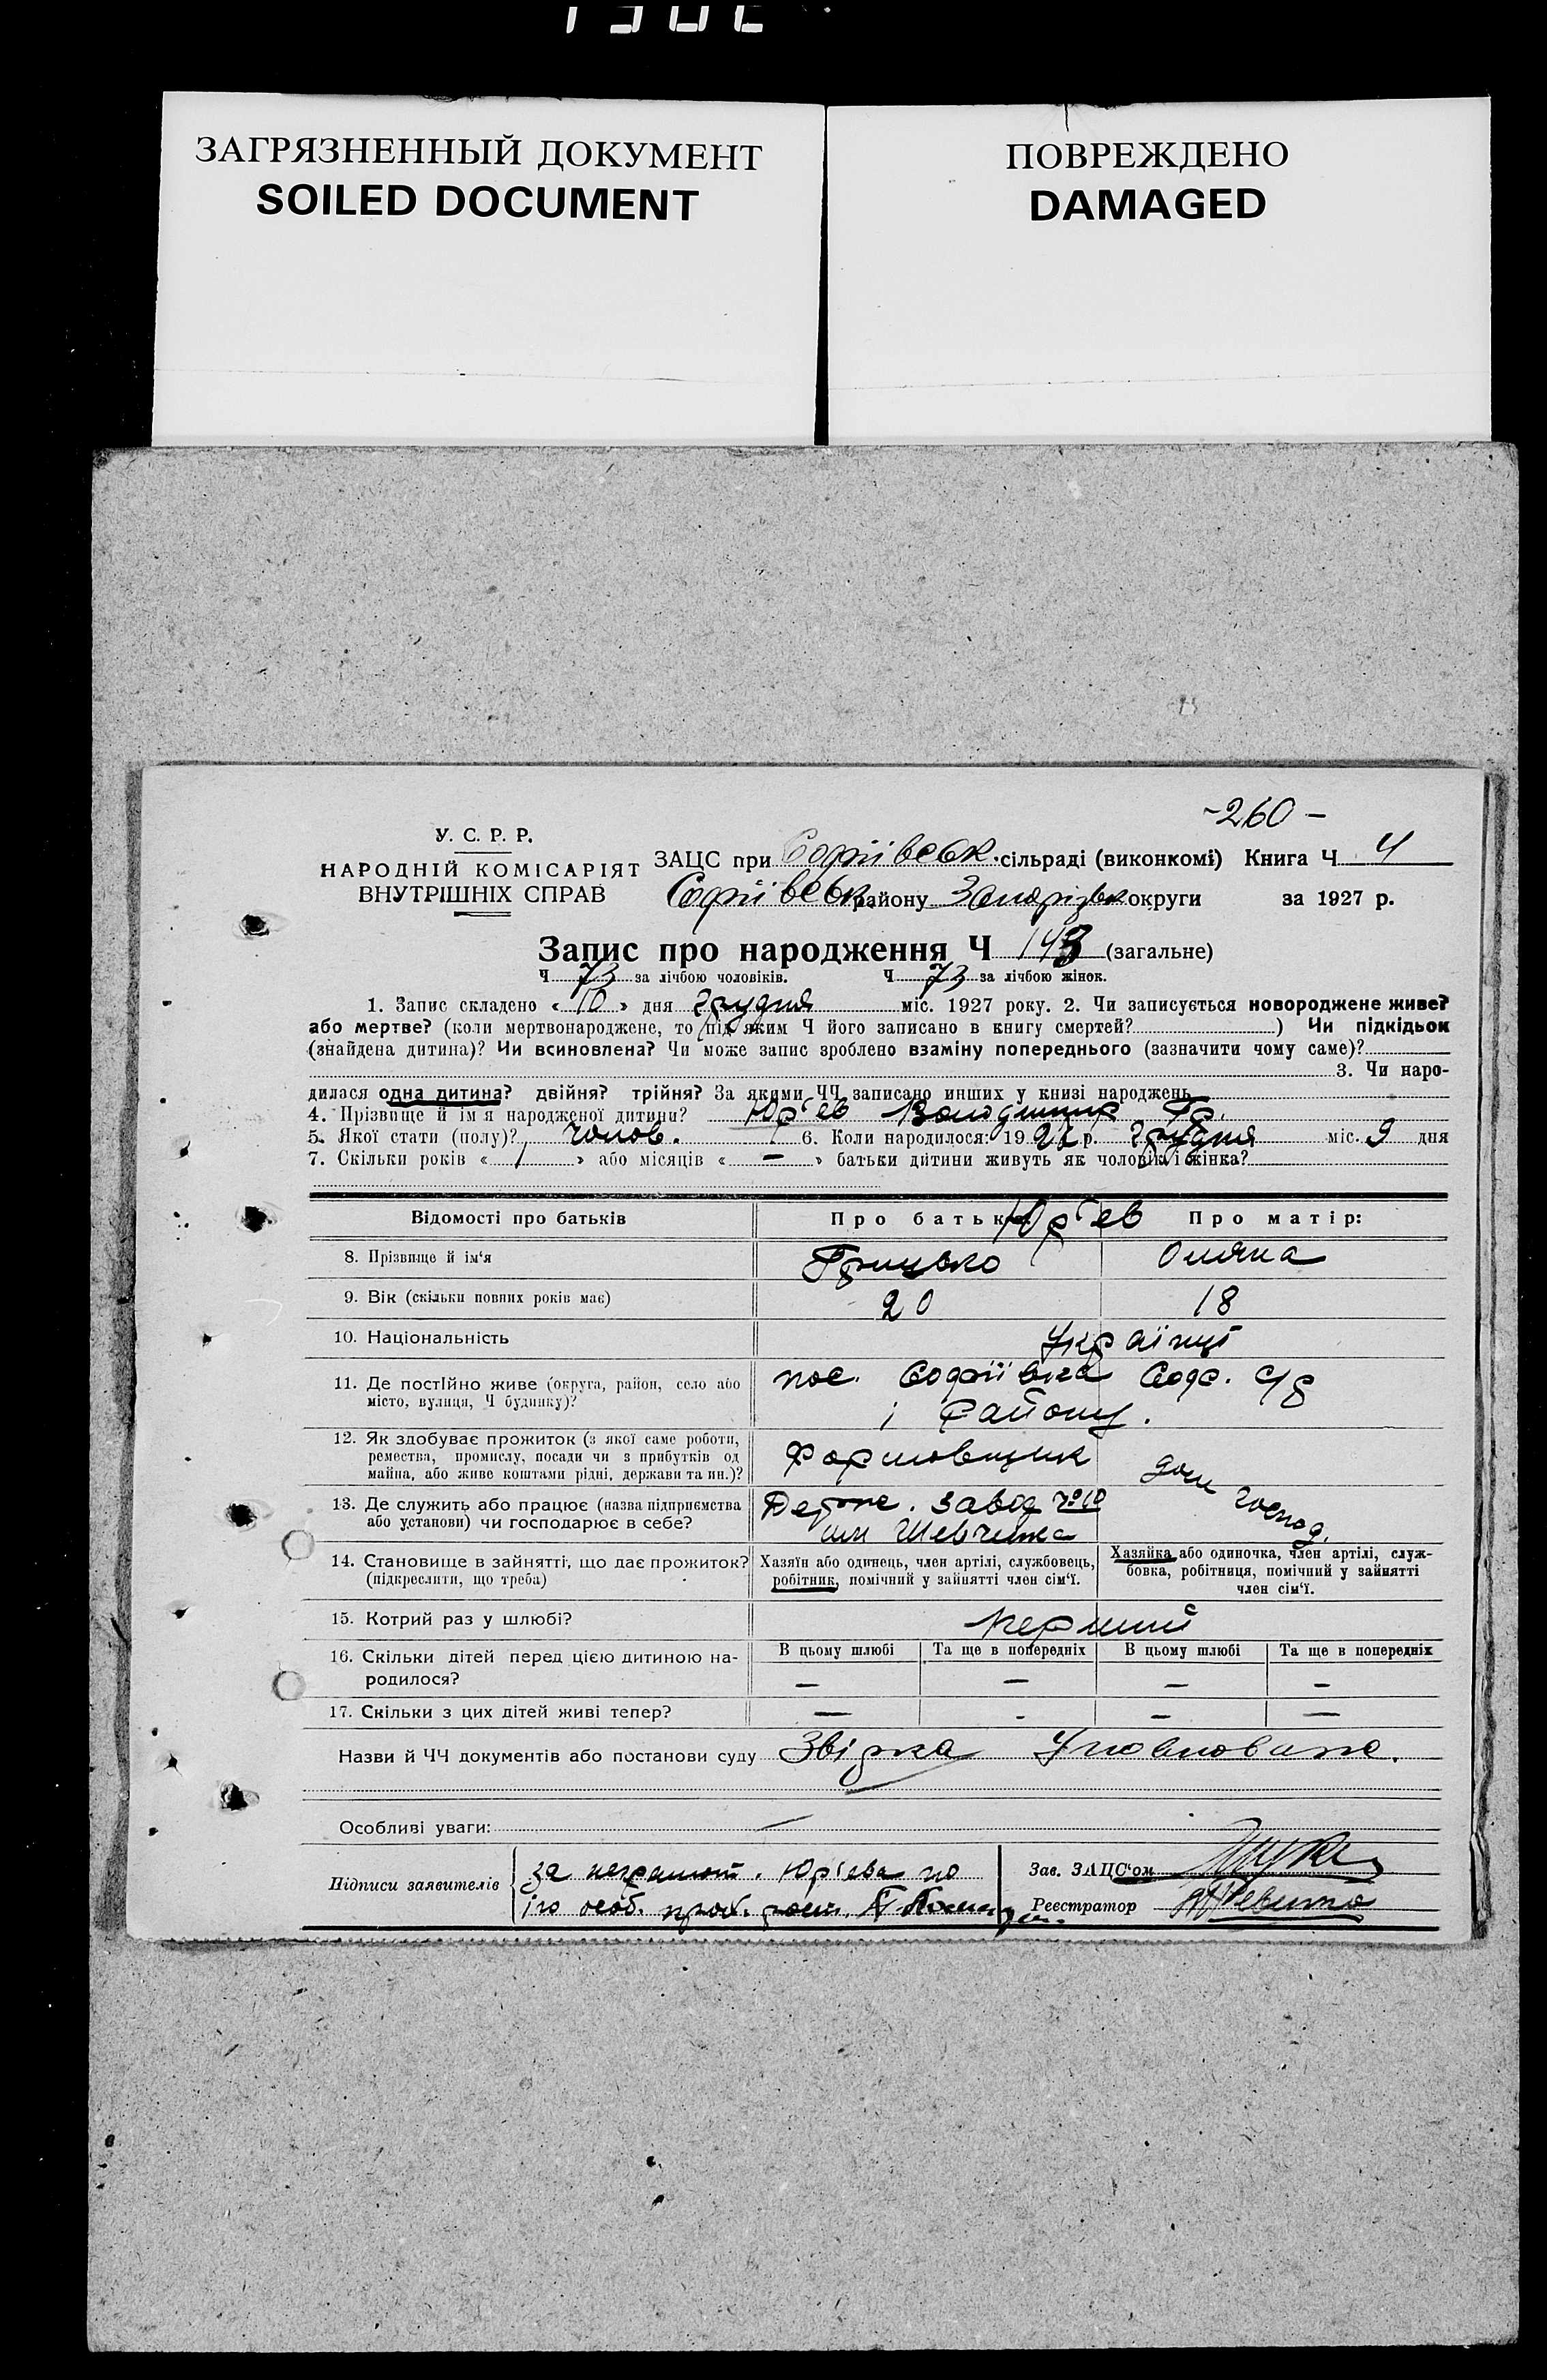 ЗАГРЯЗНЕННЫЙ ДОКУМЕНТ
SOILED DOCUMENT
ПОВРЕЖДЕНО
DAMAGED
-260-
У. С. Р. Р.
НАРОДНІЙ КОМІСАРІЯТ
ВНУТРІШНІХ СПРАВ
ЗАЦС при Софіївськ. сільраді (виконкомі) Книга Ч 4
Софіївськ. району Запорізьк округи за 1927 р.
Запис про народження Ч 143 (загальне)
Ч 73 за лічбою чоловіків. Ч 73 за лічбою жінок.
1. Запис складено « 10 » дня грудня міс. 1927 року. 2. Чи записується новороджене живе?
або мертве? (коли мертвонароджене, то під яким Ч його записано в книгу смертей? ) Чи підкідьок
(знайдена дитина)? Чи всиновлена? Чи може запис зроблено взаміну попереднього (зазначити чому саме)?
3. Чи наро-
дилася одна дитина? двійня? трійня? За якими ЧЧ записано инших у книзі народжень
4. Прізвище й ім'я народженої дитини? Юр'єв Володимир Гр.
5. Якої стати (полу)? чолов. 6. Коли народилося: 1927 р. грудня міс. 9 дня
7. Скільки років « 1 » або місяців « — » батьки дитини живуть як чоловік і жінка?
Відомості про батьків Про батька: Юр'єв Про матір:
8. Прізвище й ім'я Грицько Оляна
9. Вік (скільки повних років має) 20 18
10. Національність Українці
11. Де постійно живе (округа, район, село або
місто, вулиця, Ч будинку)?
пос. Софіївка Соф. с/р
і району.
12. Як здобуває прожиток (з якої саме роботи,
ремества, промислу, посади чи з прибутків од
майна, або живе коштами рідні, держави та ин.)?
Формовщик
дом господ.
13. Де служить або працює (назва підприємства
або установи) чи господарює в себе?
завод №10
ім Шевченка
14. Становище в зайнятті, що дає прожиток?
(підкреслити, що треба)
Хазяїн або одинець, член артілі, службовець,
робітник, помічний у зайнятті член сім'ї.
Хазяйка або одиночка, член артілі, служ-
бовка, робітниця, помічний у зайнятті
член сім'ї.
15. Котрий раз у шлюбі? перший
16. Скільки дітей перед цією дитиною на-
родилося?
В цьому шлюбі Та ще в попередніх В цьому шлюбі Та ще в попередніх
— — — —
17. Скільки з цих дітей живі тепер? — - — —
Назви й ЧЧ документів або постанови суду Звірка
Особливі уваги: —
Підписи заявителів
за неграмот. Юр'єва по
його особ. прох. розп.
Зав. ЗАЦС'ом
Реєстратор